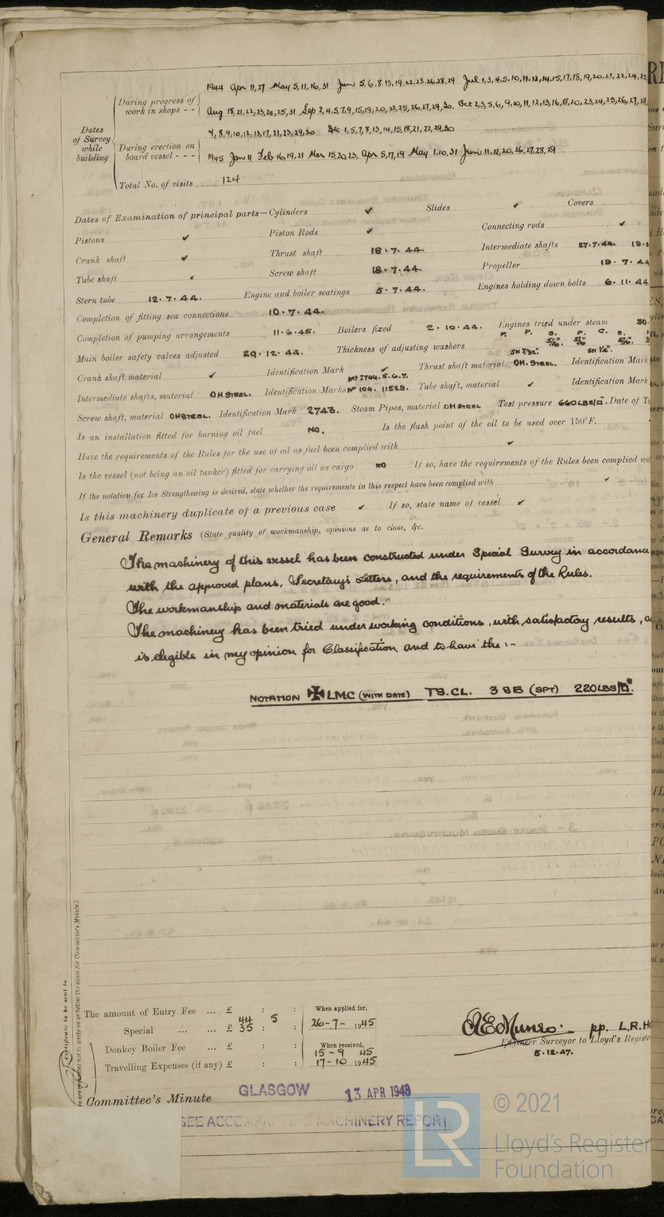 1944 Apr 11, 27 May 5, 11, 16, 31 Jun 5. 6. 8. 13, 19, 22, 23. 26. 28. 29 Jul 1, 3, 4, 5. 10, 11, 12, 14, 15, 17, 18, 19, 20, 21, 22, 24, 25
During progress of work in shops - - Aug 18, 21, 22, 23, 24, 25, 31 Sep 2, 4, 5, 7, 9, 15, 19, 20, 22, 25, 26, 27, 29, 30. Oct 2, 3, 5, 6, 9, 10, 11, 12, 13, 16, 18, 20, 23, 24, 25, 26, 27, 28
Dates of Survey while building
4, 8, 9, 10, 12, 13, 17, 21, 23, 29, 30 Dec 1, 5, 7, 8, 13, 14, 15, 18, 21, 22, 29, 30
During erection on board vessel - - - 1945 Jan 11 Feb 16, 19, 21 Mar 15, 20, 23, Apr 5, 17, 19 May 1. 10. 31 June 11, 12, 20, 26, 27, 28, 29
Total No. of visits 124
Dates of Examination of principal parts—Cylinders ✓ Slides ✓ Covers
Pistons ✓ Piston Rods ✓ Connecting rods ✓
Crank shaft ✓ Thrust shaft 18.7.44. Intermediate shafts 27.7.44.
Tube shaft ✓ Screw shaft 18.7.44. Propeller 19.7.44
Stern tube 12.7.44. Engine and boiler seatings 5.7.44. Engines holding down bolts 6.11.44
Completion of fitting sea connections 10.7.44.
Completion of pumping arrangements 11.6.45. Boilers fixed 2.10.44. Engines tried under steam 30
Main boiler safety valves adjusted 29.12.44. Thickness of adjusting washers
Crank shaft material ✓ Identification Mark ✓ Thrust shaft material OH. STEEL. Identification Mark
Intermediate shafts, material OH STEEL. Identification Marks No 104. 11523. Tube shaft, material ✓ Identification Mark
Screw shaft, material OH STEEL. Identification Mark 2743. Steam Pipes, material OH STEEL Test pressure 660 LBS/□". Date of T
Is an installation fitted for burning oil fuel NO. Is the flash point of the oil to be used over 150°F.
Have the requirements of the Rules for the use of oil as fuel been complied with ✓
Is the vessel (not being an oil tanker) fitted for carrying oil as cargo NO If so, have the requirements of the Rules been complied w
If the notation for Ice Strengthening is desired, state whether the requirements in this respect have been complied with ✓
Is this machinery duplicate of a previous case ✓ If so, state name of vessel ✓
General Remarks (State quality of workmanship, opinions as to class, &c.
The machinery of this vessel has been constructed under Special Survey in accordanc
with the approved plans, Secretary's Letters, and the requirements of the Rules.
The workmanship and materials are good.
The machinery has been tried under working conditions, with satisfactory results, a
is eligible in my opinion for Classification and to have the :-
NOTATION ✠ LMC (WITH DATE) TS. CL. 3 SB (SPT) 220 LBS/□".
The amount of Entry Fee ... £ : : When applied for,
Special ... ... £ 44 5 26-7- 1945
35
Donkey Boiler Fee ... £ : : When received,
15-9 45
Travelling Expenses (if any) £ : : 17-10 1945
A E Munro. pp. L.R.H
Engineer Surveyor to Lloyd's Registe
5.12.47.
Committee's Minute GLASGOW 13 APR 1948
SEE ACCOMPANYING MACHINERY REPORT.
LR
© 2021
Lloyd's Register
Foundation